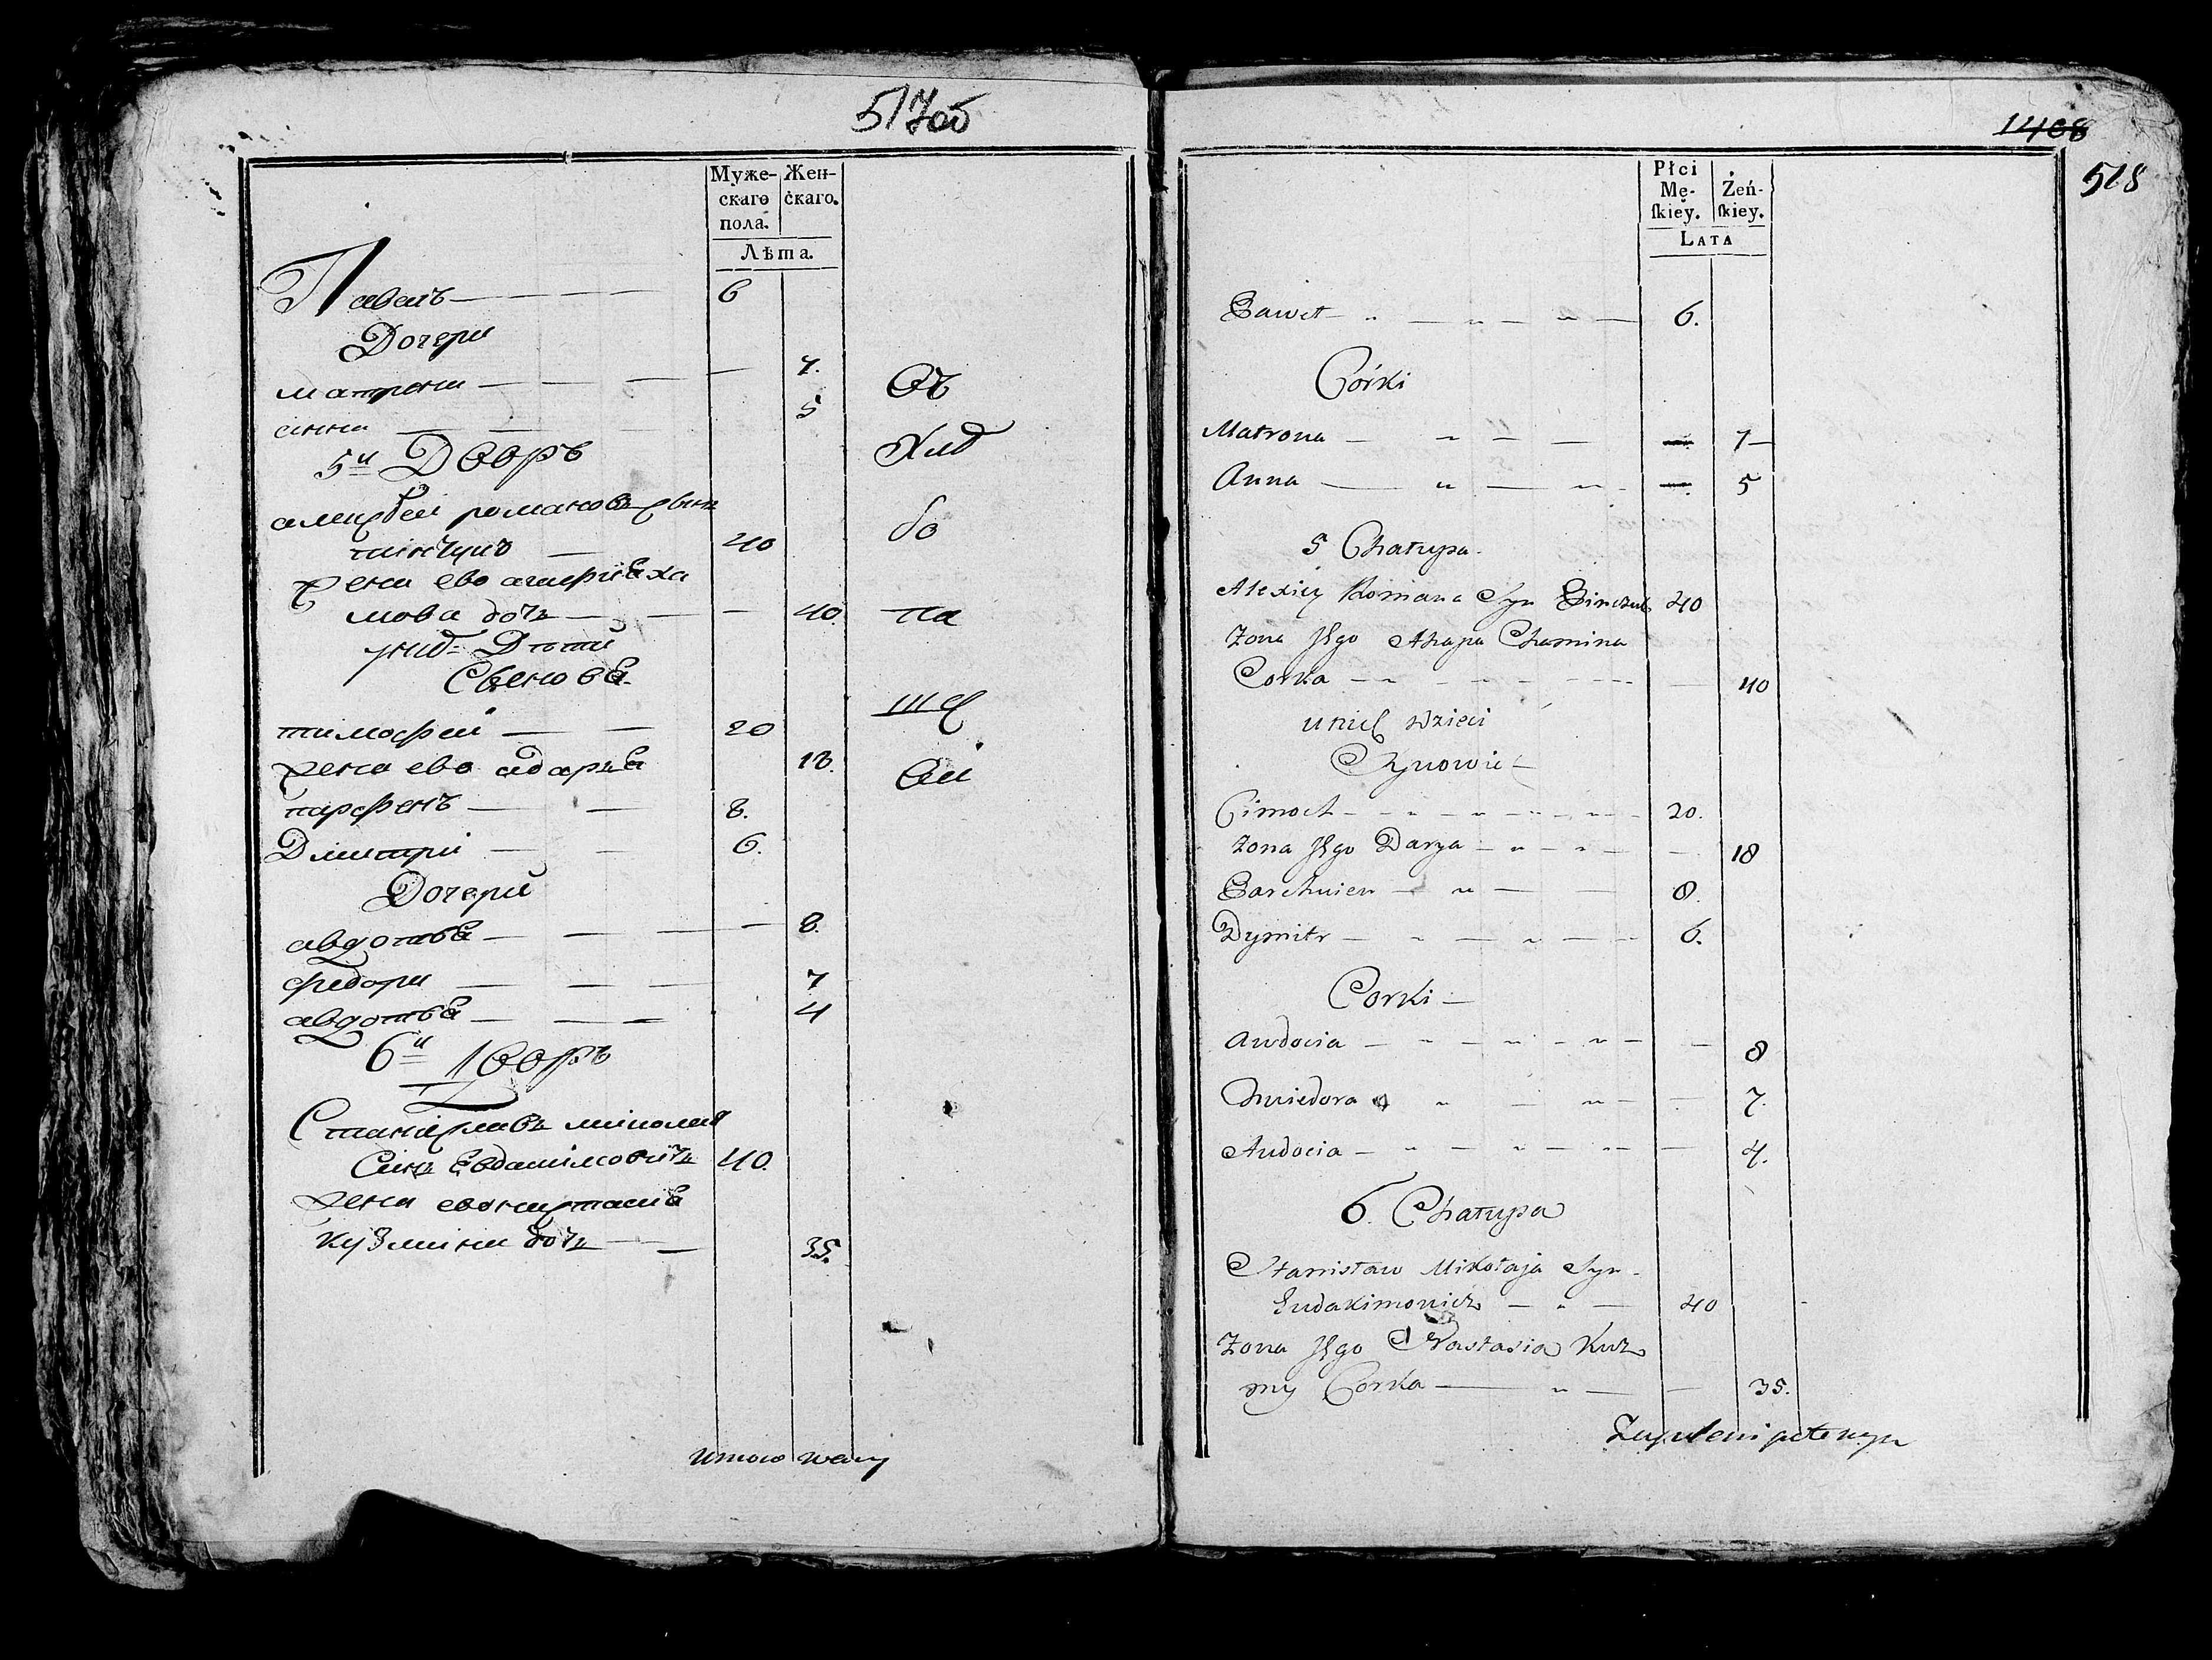 517об
Муже-
скаго
пола.
Жен-
скаго.
Лѣта.
Павелъ 6
Дочери
матрена 7.
анна 5
5й Дворъ
алексѣй романовъ сынъ
пинчукъ 40
жена ево агафия ха
мова дочь 40.
у нихъ Дѣти
Сыновья
тимофей 20
жена ево адарья 18.
парфенъ 8.
Дмитри 6.
Дочери
авдотья 8.
федора 7
авдотья 4
6й Дворъ
Станиславъ миколая
Сынъ Евдакимовичъ 40.
жена ево настасия
кузмина дочь 35.
бо
па
ше
1408
518
Płci
Mę-
skiey.
Żeń-
skiey.
LATA
Paweł 6.
Córki
Matrona 7
Anna 5
5 Chałupa
Alexiey Romana Syn Pinczuk 40
Żona Jego Ahapa Chamina
Corka 40
u nich dzieci
Synowie
Cimoch 20.
Żona Jego Darya 18
Parchwien 8.
Dymitr 6.
Corki
Audocia 8
Chwiedora 7.
Audocia 4.
6. Chałupa
Stanisław Mikołaja Syn
Eudakimowicz 40
Żona Jego Nastasia Kuz
my Corka 35.